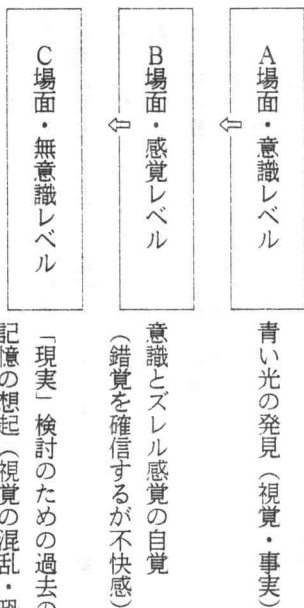 A場面・意識レベル
青い光の発見（視覚・事実）
⇦
B場面・感覚レベル
意識とズレル感覚の自覚
（錯覚を確信するが不快感）
⇦
C場面・無意識レベル
「現実」検討のための過去の
記憶の想起（視覚の混乱・恐